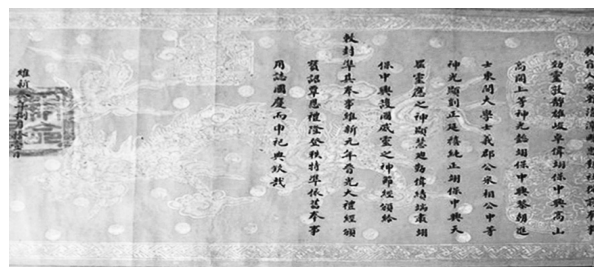 社從前奉事
効靈敦靜雄峻卓偉翊保中興高山
高閣上等神光懿翊保中興黎朝進
士東閣大學士義郡公相公中等
神光顯剴正延禧純正翊保中興天
罡靈應之神顯迪偉績端肅翊
保中興護國威靈之神節經頒給
敕封準其奉事維新元年晉光大禮經頒
寶詔覃恩禮隆登秩特準依舊奉事
用誌國慶而申祀典欽哉
維新年捌月拾壹日